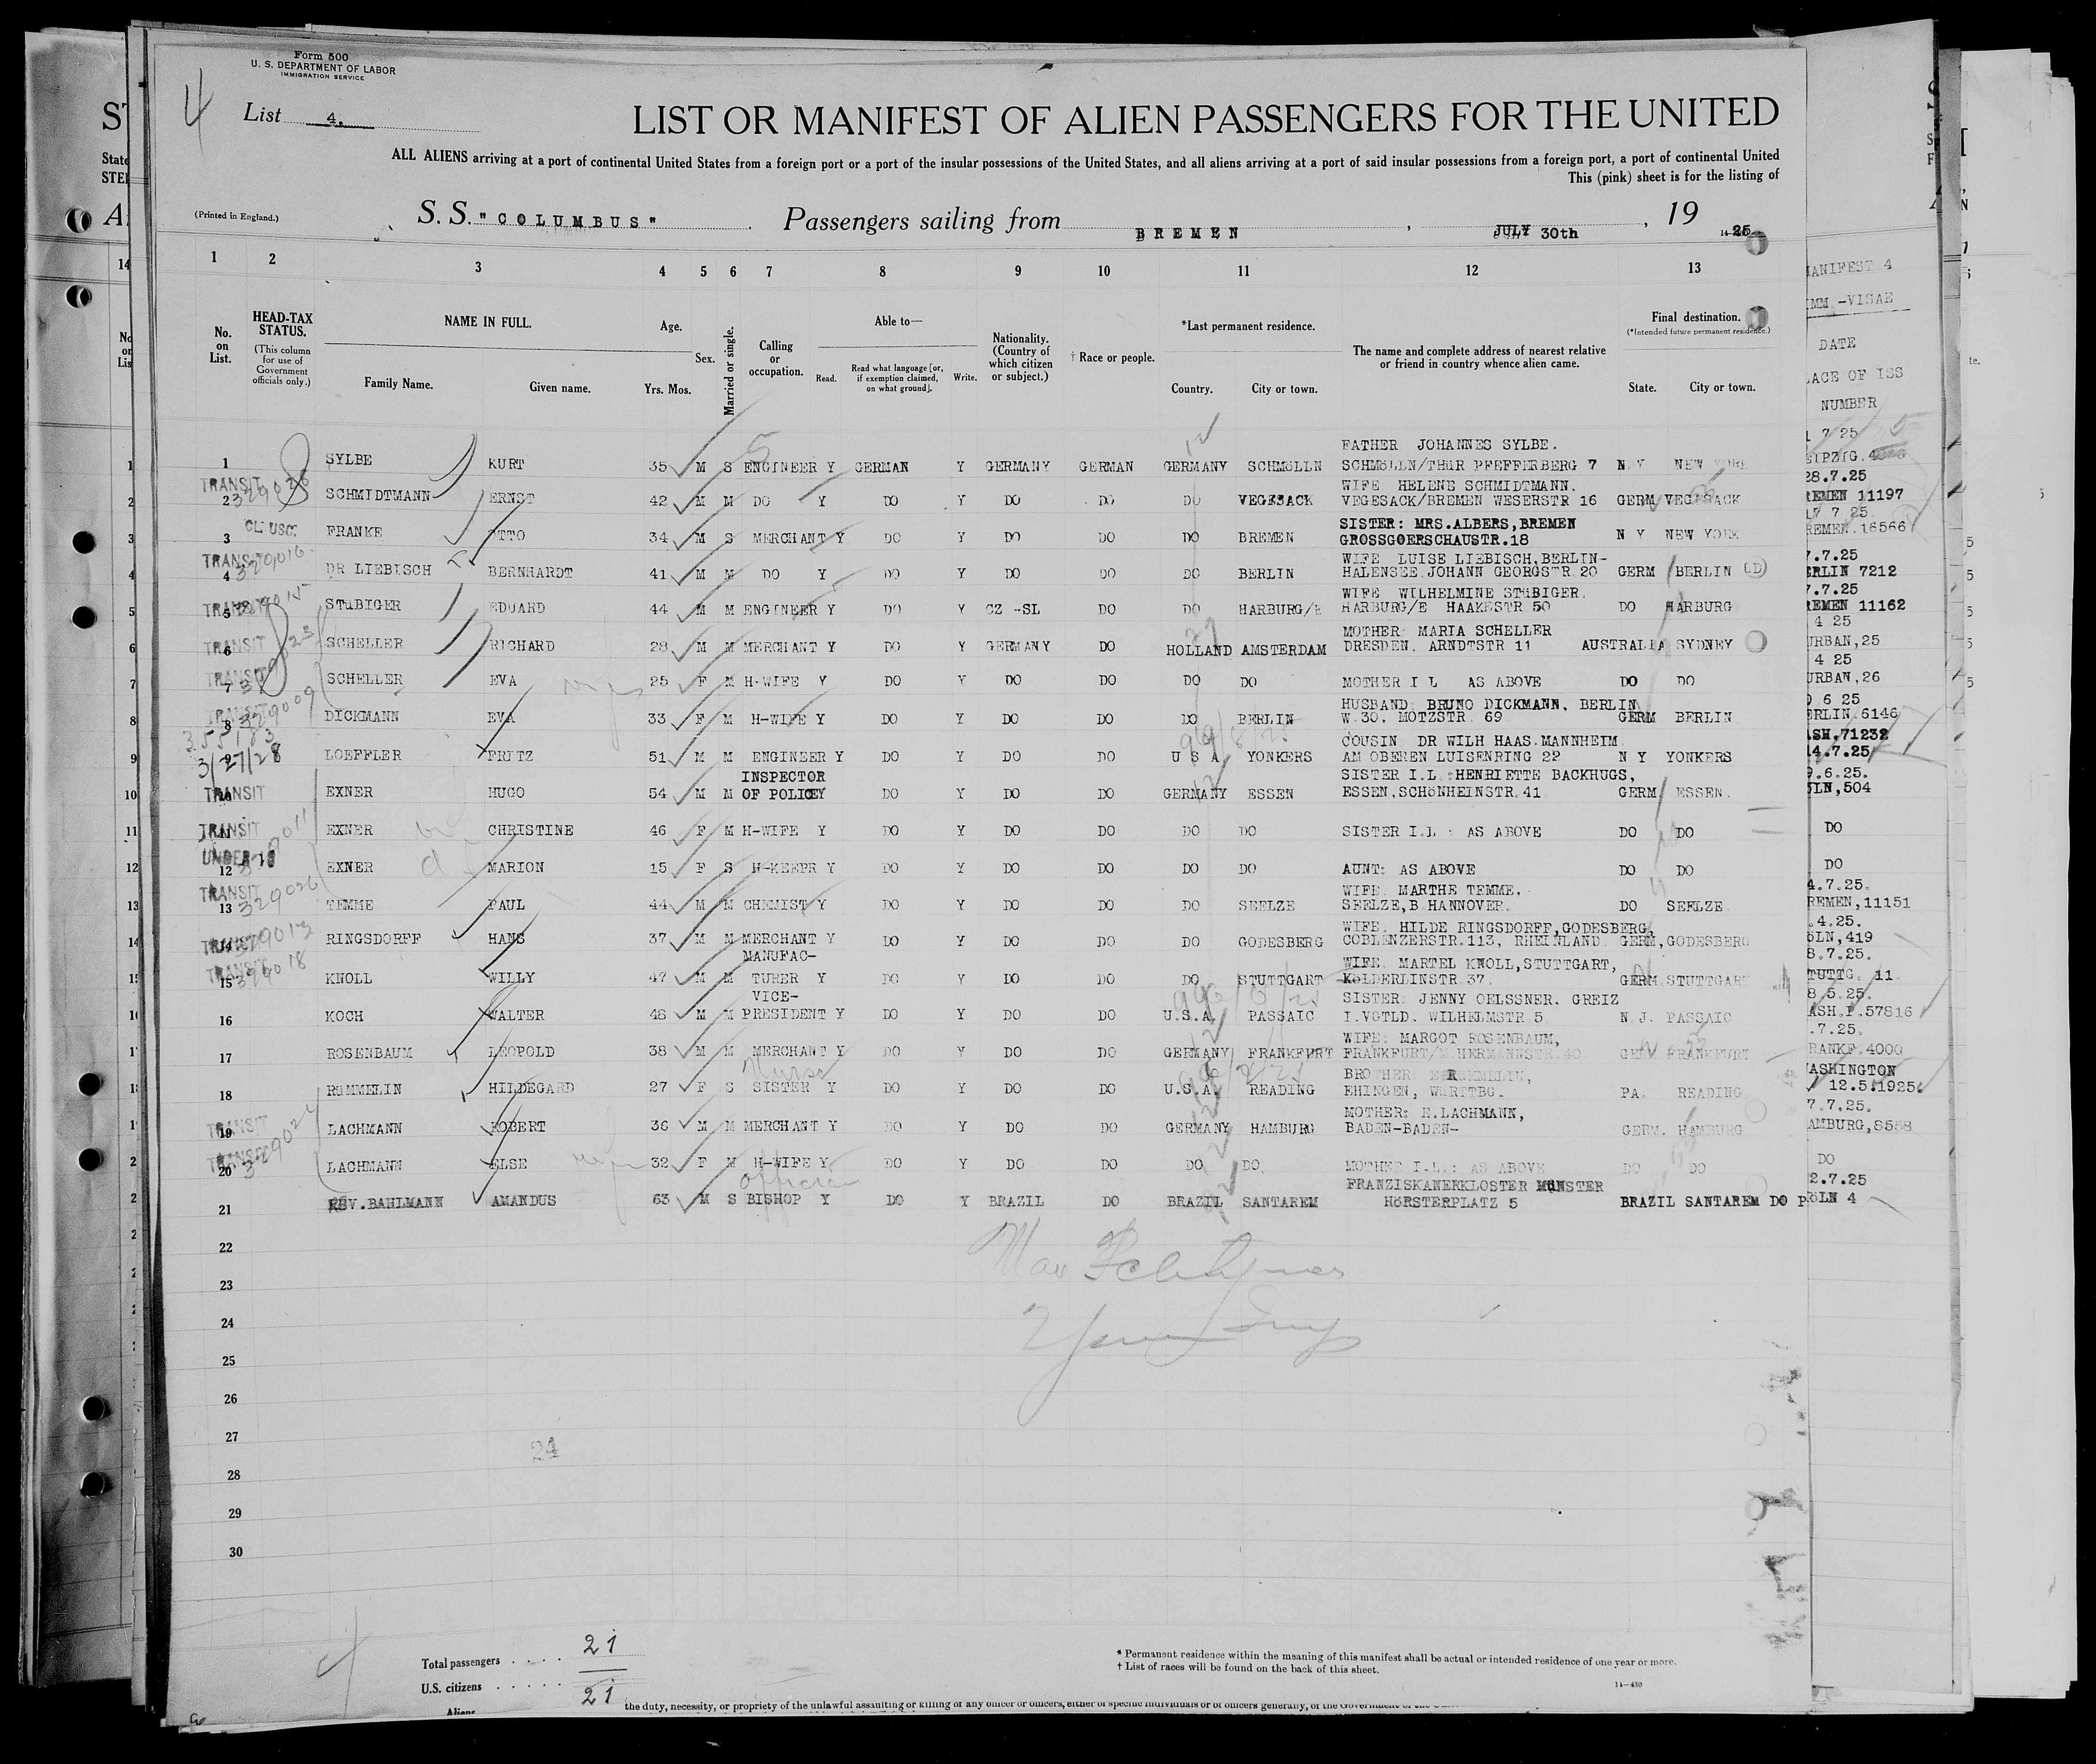 Form 500
U. S. DEPARTMENT OF LABOR
IMMIGRATION SERVICE
4
List 4.
LIST OR MANIFEST OF ALIEN PASSENGERS FOR THE UNITED
ALL ALIENS arriving at a port of continental United States from a foreign port or a port of the insular possessions of the United States, and all aliens arriving at a port of said insular possessions from a foreign port, a port of continental United
This (pink) sheet is for the listing of
(Printed in England.)
S. S. "COLUMBUS" Passengers sailing from BREMEN, JULY 30th, 19 25
1 2 3 4 5 6 7 8 9 10 11 12 13
No. on List. HEAD-TAX STATUS. (This column for use of Government officials only.) NAME IN FULL. Family Name. Given name. Age. Yrs. Mos. Sex. Married or single. Calling or occupation. Able to— Read. Read what language [or, if exemption claimed, on what ground]. Write. Nationality. (Country of which citizen or subject.) † Race or people. *Last permanent residence. Country. City or town. The name and complete address of nearest relative or friend in country whence alien came. Final destination. (*Intended future permanent residence.) State. City or town.
MANIFEST 4
IMM -VISAE
DATE
LACE OF ISS
NUMBER
FATHER JOHANNES SYLBE.
1 SYLBE KURT 35 M S ENGINEER Y GERMAN Y GERMANY GERMAN GERMANY SCHMöLLN SCHMöLLN/THüR PFEFFERBERG 7 N Y NEW YORK
TRANSIT WIFE HELENE SCHMIDTMANN. 28.7.25
2 SCHMIDTMANN ERNST 42 M M DO Y DO Y DO DO DO VEGESACK VEGESACK/BREMEN WESERSTR 16 GERM VEGESACK REMEN 11197
SISTER: MRS.ALBERS,BREMEN
3 FRANKE OTTO 34 M S MERCHANT Y DO Y DO DO DO BREMEN GROSSGOERSCHAUSTR.18 N Y NEW YORK REMEN.16566
TRANSIT 329016 WIFE LUISE LIEBISCH,BERLIN- 7.7.25
4 DR LIEBISCH BERNHARDT 41 M M DO Y DO Y DO DO DO BERLIN HALENSEE JOHANN GEORGSTR 20 GERM BERLIN ERLIN 7212
TRANSIT WIFE WILHELMINE STüBIGER. 7.7.25
5 STüBIGER EDUARD 44 M M ENGINEER Y DO Y CZ -SL DO DO HARBURG/E HARBURG/E HAAKESTR 50 DO HARBURG REMEN 11162
TRANSIT MOTHER MARIA SCHELLER 4 25
6 SCHELLER RICHARD 28 M M MERCHANT Y DO Y GERMANY DO HOLLAND AMSTERDAM DRESDEN. ARNDTSTR 11 AUSTRALIA SYDNEY URBAN,25
TRANSIT 4 25
7 SCHELLER EVA 25 F M H-WIFE Y DO Y DO DO DO DO MOTHER I L AS ABOVE DO DO URBAN,26
TRANSIT 329009 HUSBAND BRUNO DICKMANN. BERLIN 6 25
8 DICKMANN EVA 33 F M H-WIFE Y DO Y DO DO DO BERLIN W.30. MOTZSTR 69 GERM BERLIN ERLIN.6146
355183 COUSIN DR WILH HAAS.MANNHEIM ASH.71232
3/27/28 9 LOEFFLER FRITZ 51 M M ENGINEER Y DO Y DO DO U S A YONKERS AM OBEREN LUISENRING 22 N Y YONKERS 14.7.25
INSPECTOR SISTER I.L :HENRIETTE BACKHUGS, 9.6.25.
10 TRANSIT EXNER HUGO 54 M M OF POLICEY DO Y DO DO GERMANY ESSEN ESSEN,SCHöNHEINSTR.41 GERM ESSEN. öLN,504
11 TRANSIT EXNER CHRISTINE 46 F M H-WIFE Y DO Y DO DO DO DO SISTER I.L : AS ABOVE DO DO DO
UNDER 16
12 EXNER MARION 15 F S H-KEEPR Y DO Y DO DO DO DO AUNT: AS ABOVE DO DO DO
TRANSIT 329026 WIFE MARTHE TEMME. 4.7.25.
13 TEMME PAUL 44 M M CHEMIST Y DO Y DO DO DO SEELZE SEELZE,B.HANNOVER. DO SEELZE REMEN,11151
WIFE HILDE RINGSDORFF,GODESBERG, .4.25.
14 TRANSIT 329013 RINGSDORFF HANS 37 M M MERCHANT Y DO Y DO DO DO GODESBERG COBLENZERSTR.113, RHEINLAND GERM,GODESBERG öLN,419
TRANSIT 329018 MANUFAC- WIFE MARTEL KNOLL,STUTTGART, 8.7.25.
15 KNOLL WILLY 47 M M TURER Y DO Y DO DO DO STUTTGART KöLDERLINSTR 37. GERM STUTTGART TUTTG. 11
VICE- SISTER JENNY OELSSNER. GREIZ 8.5.25.
16 KOCH WALTER 48 M M PRESIDENT Y DO Y DO DO U.S.A. PASSAIC I.VOTLD. WILHELMSTR 5 N.J. PASSAIC ASH.P.57816
WIFE: MARGOT ROSENBAUM, .7.25.
17 ROSENBAUM LEOPOLD 38 M M MERCHANT Y DO Y DO DO GERMANY FRANKFURT FRANKFURT/M HERMANNSTR 40 GERM FRANKFURT RANKF.4000
Nurse BROTHER WASHINGTON
18 RüMMELIN HILDEGARD 27 F S SISTER Y DO Y DO DO U.S.A. READING EHINGEN, WüRTTBG. PA. READING 12.5.1925.
TRANSIT MOTHER: E.LACHMANN, 7.7.25.
19 LACHMANN ROBERT 36 M M MERCHANT Y DO Y DO DO GERMANY HAMBURG BADEN-BADEN- GERM. HAMBURG AMBURG,8558
TRANSIT
20 LACHMANN ELSE 32 F M H-WIFE Y DO Y DO DO DO DO. MOTHER I.L.: AS ABOVE DO DO DO
official FRANZISKANERKLOSTER MüNSTER 2.7.25
21 REV.BAHLMANN AMANDUS 63 M S BISHOP Y DO Y BRAZIL DO BRAZIL SANTAREM HöRSTERPLATZ 5 BRAZIL SANTAREM DO P öLN 4
22
23
24
25
26
27
24
28
29
30
Total passengers 21
U.S. citizens
Aliens 21
* Permanent residence within the meaning of this manifest shall be actual or intended residence of one year or more.
† List of races will be found on the back of this sheet.
14—430
the duty, necessity, or propriety of the unlawful assaulting or killing of any officer or officers, either of specific individuals or of officers generally, of the Government of the